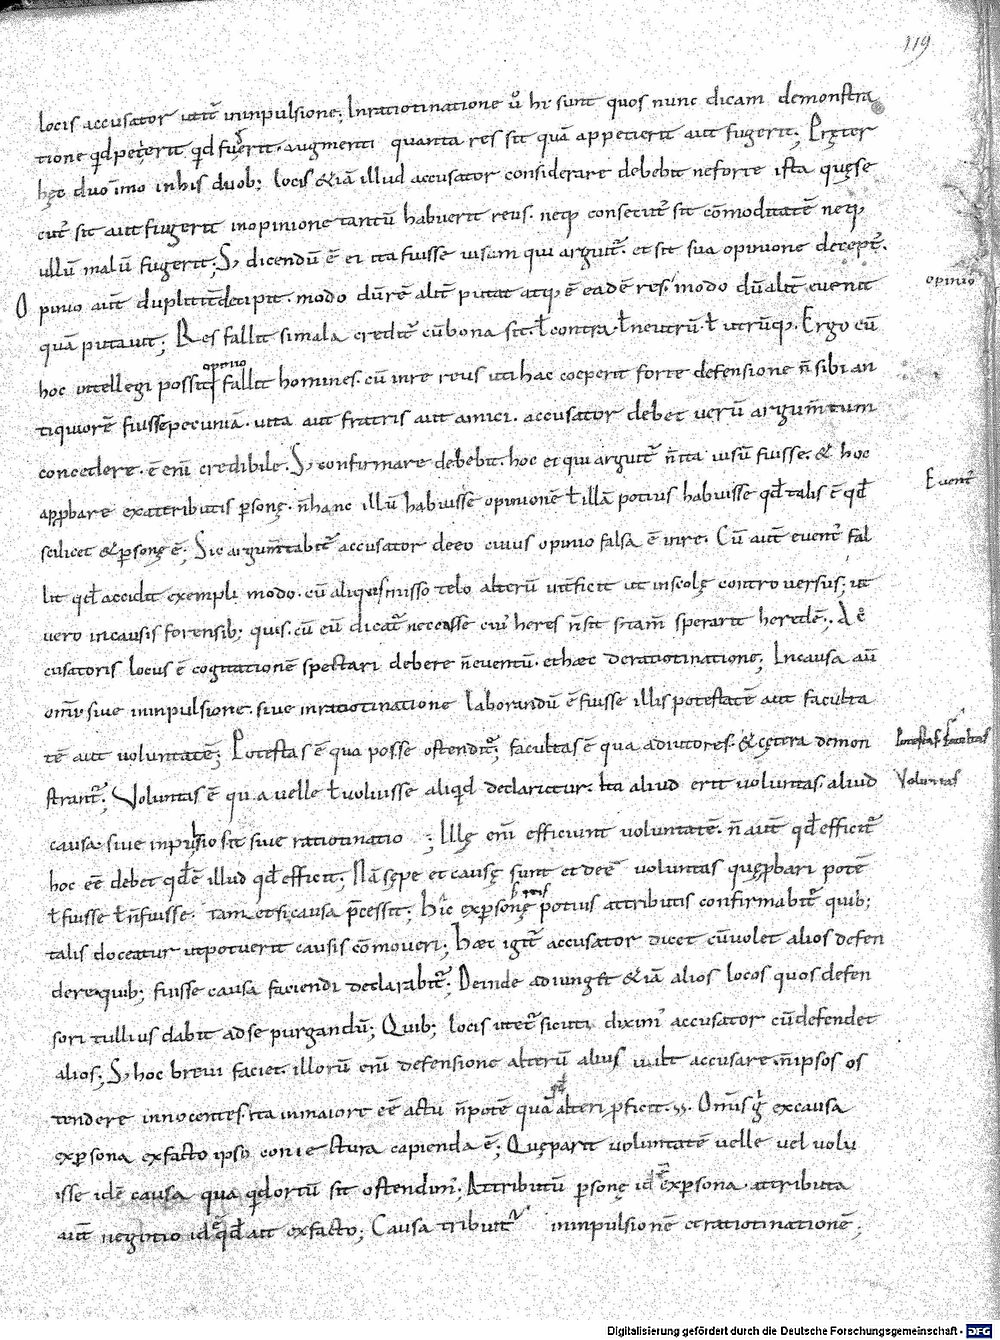 119
locis accusator utit̃ ininpulsione; Inratiotinatione ů hi sunt quos nunc dicam demonstra
tione qd petierit qd fugerit. augmenti quanta res sit quā appetierit aut fugerit; Pręter
hęc duo imo inhis duob; locis &iā illud accusator considerare debebit neforte ista quęse
cut̃ sit aut fugerit inopinione tantū habuerit reus. neq; consecut̃ sit cōmoditatē neq;
ullū malū fugerit; S; dicendū ē ei ita fuisse uisum qui arguit̃. et sit sua opinione decept̃.
Opinio aut̄ dupliciter decipit. modo dū rē alit̃ putat atq; ē eadē res. modo dū alit̃ euenit
opinio
quā putauit; Res fallit simala credit̃ cū bona sit. ł contra. ł neutrū. ł utrūq;. Ergo cū
opinio
hoc intellegi possit fallit homines. cū inre reus uti hac coeperit forte defensione n̄ sibi an
tiquiorē fuisse pecuniā. uita aut fratris aut amici. accusator debet uerū argum̄tum
concedere. ē eni credibile. S; confirmare debebit. hoc et qui arguit̃ n̄ ita uisū fuisse. & hoc
apꝓbare exatteributis ꝑsonę. n̄ hanc illū habuisse opinionē ł illā potius habuisse qđ talis ē qđ
Euent̃
scilicet & ꝑsonę ē. Sic argum̄tabit̃ accusator deeo cuius opinio falsa ē inre. Cū aut̄ euent̃ fal
lit qđ accidit exempli modo. cū aliquis misso telo alterū int̃ficit ut inscolę controuersus; ut
uero incausis forensib; quis. cū eū dicat̃ necasse cui heres n̄ sit s̄tam̄ sperarit heredē; Ac
cusatoris locus ē cogitationē spectari debere n̄ euentū. et hæc deratiotinatione; Incausa aū
omī siue ininpulsione. siue inratiotinatione laborandū ē fuisse illis potestatē aut faculta
tē aut uoluntatē; Potestas ē qua posse ostendit̃; facultas ē qua adiutores. & cętera demon
Potestas Facultas
strant̃; Voluntas ē qua uelle ł uoluisse aliqid declaretur. Ita aliud erit uoluntas. aliud
Voluntas
causa. siue inpulsio sit siue ratiotinatio; Illę eni efficiunt uoluntatē. n̄ aut̄ qđ efficit̃
hoc eē debet qđ ē illud qđ efficit; Nā sępe et causę sunt et deē uoluntas quę ꝓbari potē
ł fuisse ł n̄ fuisse. tam etsi causa p̄cessit; Hic exꝑsonę potius attributis confirmabit̃ quib;
talis doceatur ut potuerit causis cōmoueri; Hæc igit̃ accusator dicet cū uolet alios defen
dere. quib; fuisse causa faciendi declarabit̃; Deinde adiunget &iā alios locos quos defen
sori tullius dabit adse purgandū; Quib; locis utet̃ sicuti diximꝰ accusator cū defendet
alios; S; hoc breui faciet. illorū eni defensione alterū alius uult accusare. n̄ ipsos os
tendere innocentes. ita inmaiore eē actu n̄ potē quā alteri ꝓficit. Omīs g̊ excausa
exꝑsona exfacto ipso coniectura capienda ē; Quę parit uoluntatē uelle uel uolu
isse idē causa qua qid ortū sit ostendim̃. Attributū ꝑsonę id ē exꝑsona. attributa
aut̄ negotio id ē qđ ait exfacto; Causa tribuit̃ ininpulsionē et ratiotinationē;
Digitalisierung gefördert durch die Deutsche Forschungsgemeinschaft - DFG